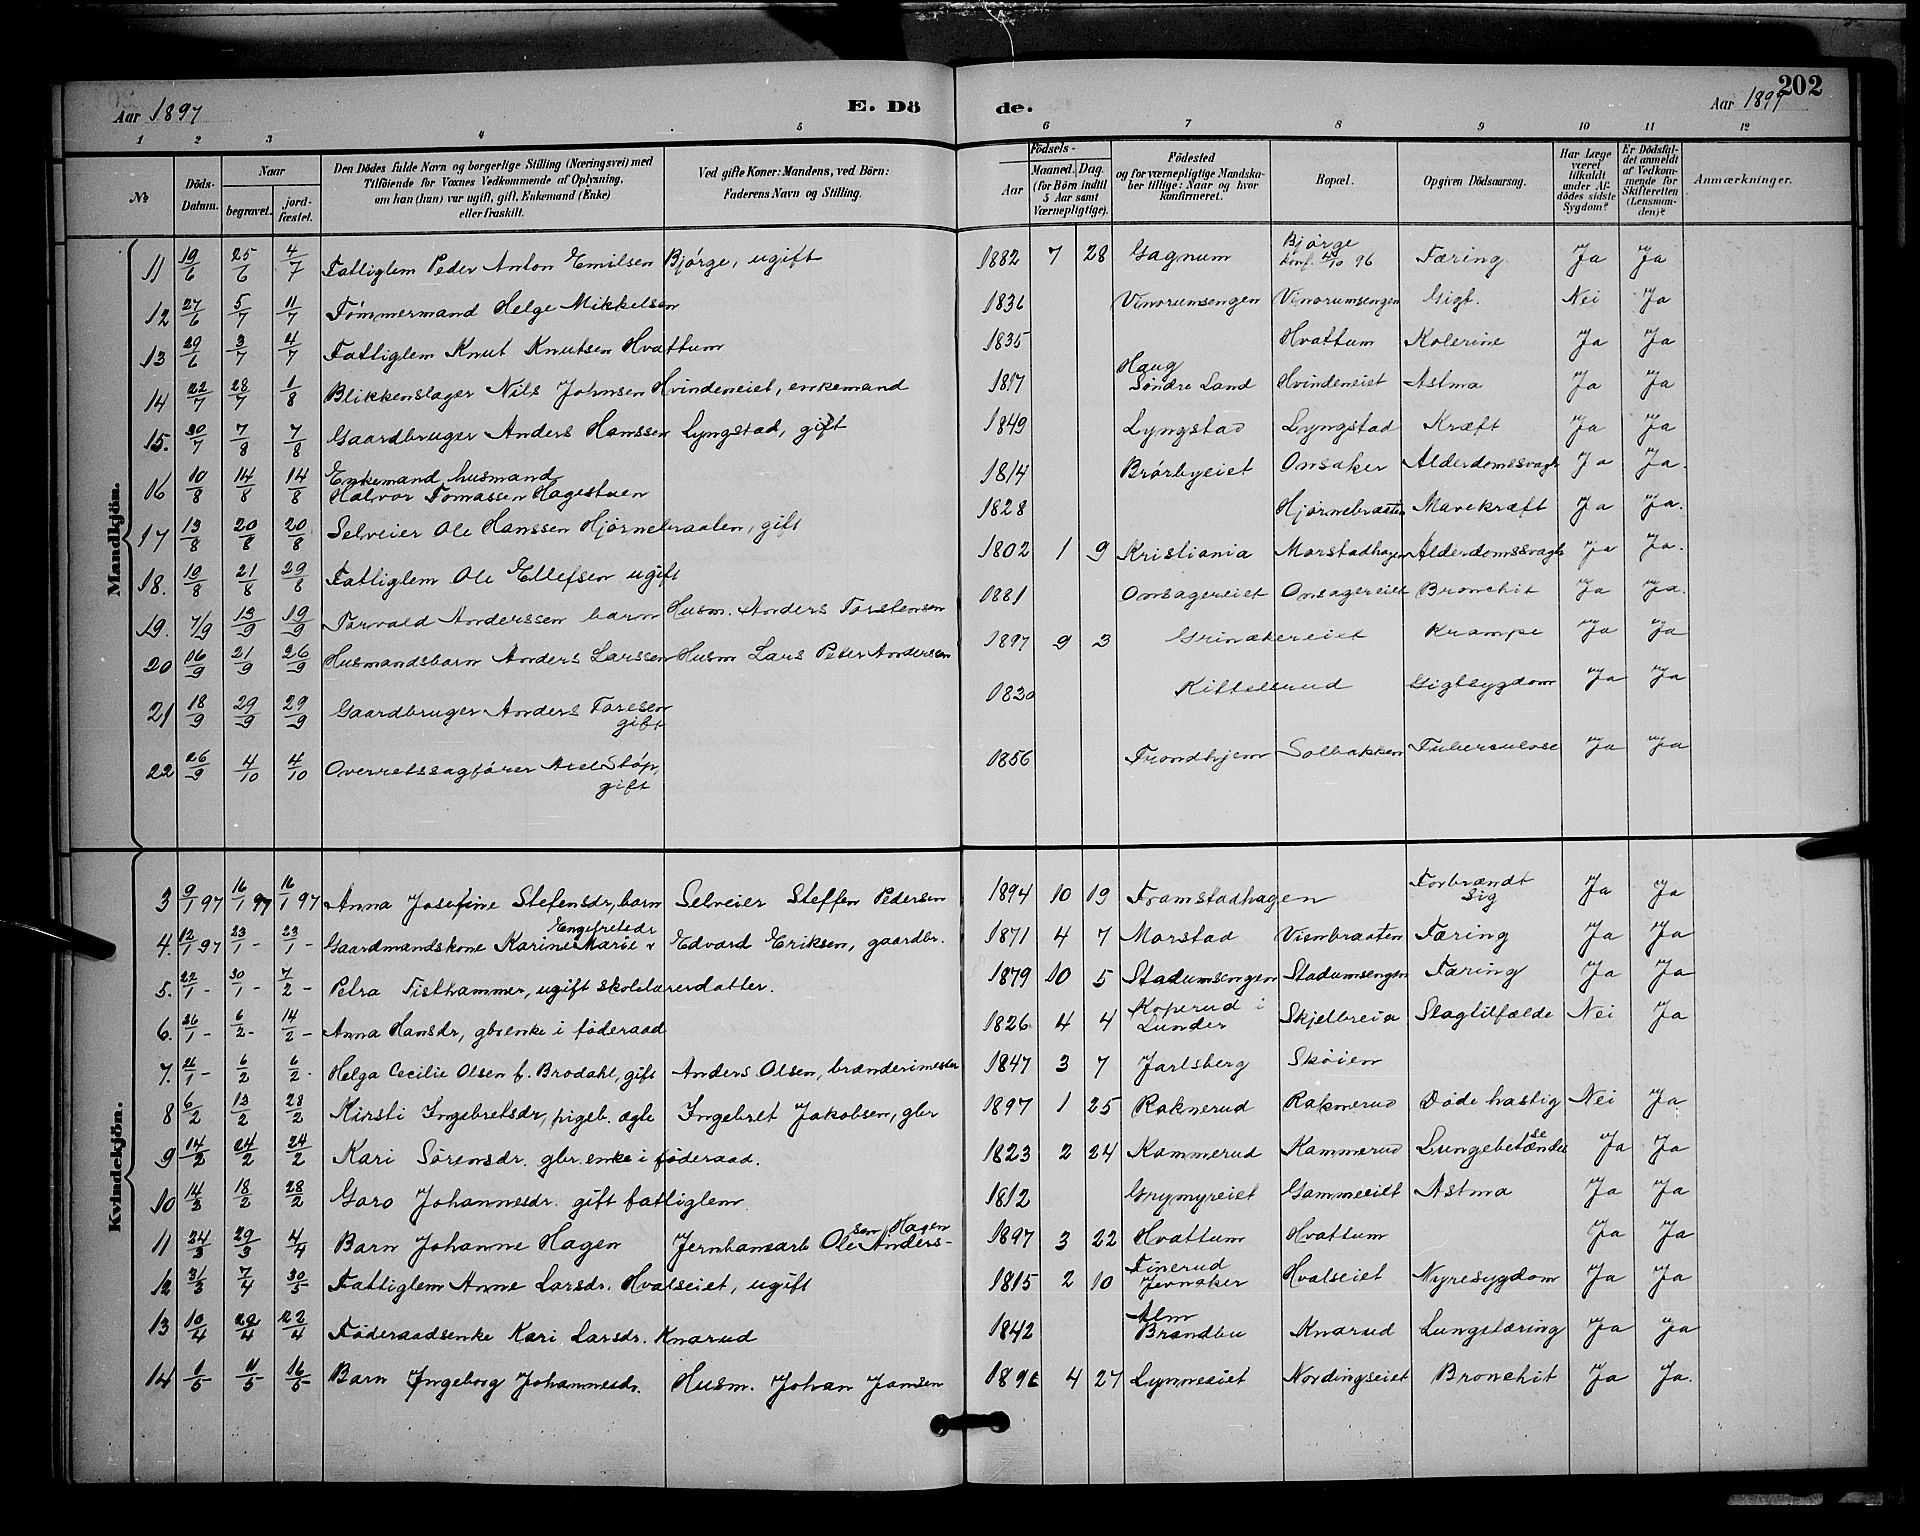 202
Aar 1897 E. Dö de. Aar 1897
1 2 3 4 5 6 7 8 9 10 11 12
№ Döds-Datum. Naar begravet. jordfæstet. Den Dödes fulde Navn og borgerlige Stilling (Næringsvei) med Tilföiende for Voxnes Vedkommende af Oplysning, om han (hun) var ugift, gift, Enkemand (Enke) eller fraskilt. Ved gifte Koner: Mandens, ved Börn: Faderens Navn og Stilling. Födsels- Aar Maaned. Dag. (for Börn indtil 5 Aar samt Værnepligtige). Födested og for værnepligtige Mandskaber tillige: Naar og hvor konfirmeret. Bopæl. Opgiven Dödsaarsag. Har Læge været tilkaldt under Afdödes sidste Sygdom? Er Dödsfaldet anmeldt af Vedkommende for Skifteretten (Lensmanden)? Anmærkninger.
Mandkjön.
11 19/6 25/6 4/7 Fattiglem Peder Anton Emilsen Bjørge, ugift 1882 7 28 Gagnum Bjørge konf. 96 Tæring Ja Ja
12 27/6 5/7 11/7 Tømmermand Helge Mikkelsen 1836 Vinorumsengen Vinorumsengen Gigt. Nei Ja
13 29/6 3/7 4/7 Fattiglem Knut Knutsen Hvattum 1835 Hvattum Kolerine Ja Ja
14 22/7 28/7 1/8 Blikkenslager Nils Johnsen Hvindeneiet, enkemand 1817 Haug Søndre Land Hvindeneiet Astma Ja Ja
15. 30/7 7/8 7/8 Gaardbruger Anders Hanssen Lyngstad, gift 1849 Lyngstad Lyngstad Kræft Ja Ja
16 10/8 14/8 14/8 Enkemand, husmand Halvor Tomassen Hagestuen 1814 Brørbyeiet Onsaker Alderdomssvagh Ja Ja.
17 13/8 20/8 20/8 Selveier Ole Hanssen Hjørnebraaten, gift 1828 Hjørnebraaten Mavekræft Ja Ja.
18. 19/8 21/8 29/8 Fattiglem Ole Ellefsen ugift 1802 1 9 Kristiania Morstadhagen Alderdomssvagh Ja Ja.
19. 7/9 13/9 19/9 Torvald Anderssen barn Husm. Anders Torstensen 1881 Onsagereiet Onsagereiet Bronchit Ja Ja.
20 16/9 21/9 26/9 Husmandsbarn Anders Larssen Husm Lars Peter Andersen 1897 9 3 Grinakereiet Krampe Ja Ja
21 18/9 29/9 29/9 Gaardbruger Anders Toresen gift 1830 Kittelsrud Gigtsygdom Ja Ja
22 26/9 4/10 4/10 Overretssagfører Axel Støp, gift 1856 Trondhjem Solbakken Tuberculose Ja Ja
Kvindekjön.
3 9/1 97 16/1 97 16/1 97 Anna Josefine Stefensdr, barn Selveier Steffen Pedersen 1894 10 19 Framstadhagen Forbrændt sig Ja Ja
4. 12/1 97 23/1 - 23/1 - Gaardmandskone Karine Marie Engebretsdr Edvard Eriksen, gaardbr. 1871 4 7 Morstad Vienbraaten Tæring Ja Ja
5. 22/1 - 30/1 - 7/2 - Petra Tisthammer, ugift skolelærerdatter. 1879 10 5 Stadumsengen Stadumsengen Tæring Ja Ja
6. 26/1 - 6/2 - 14/2 - Anna Hansdr, gbrenke i føderaad 1826 4 4 Koperud i Lunder Skjelbreia Slagtilfælde Nei Ja
7. 26/1 - 6/2 6/2 - Helga Cecilie Olsen f. Brodahl, gift Anders Olsen, brænderimester 1847 3 7 Jarlsberg Skøien
8 6/2 13/2 28/2 Kirsti Ingebretsdr, pigeb. ægte Ingebret Jakobsen, gbr 1897 1 25 Raknerud Raknerud Døde hastig Nei Ja
9 14/2 24/2 24/2 Kari Sørensdr. gbr. enke i føderaad. 1823 2 24 Kammerud Kammerud Lungebetændelse Ja Ja
10 14/3 18/2 28/2 Goro Johannesdr. gift fattiglem. 1812 Grymyreiet Gammeeiet Astma Ja Ja
11 24/3 29/3 4/4 Barn Johanne Hagen Jernbanearb Ole Anderssen Hagen 1897 3 22 Hvattum Hvattum Ja Ja
12 31/3 7/4 30/5 Fattiglem Anne Larsdr. Hvalseiet, ugift 1815 2 10 Finerud Jevnaker Hvalseiet Nyresygdom Ja Ja
13 10/4 22/4 22/4 Føderaadsenke Kari Larsdr. Knarud 1842 Alm Brandbu Knarud Lungetæring Ja Ja
14 1/5 11/5 16/5 Barn Ingeborg Johannesdr. Husm. Johan Jansen 1896 4 27 Lynneeiet Nordingseiet Bronchit Ja Ja.